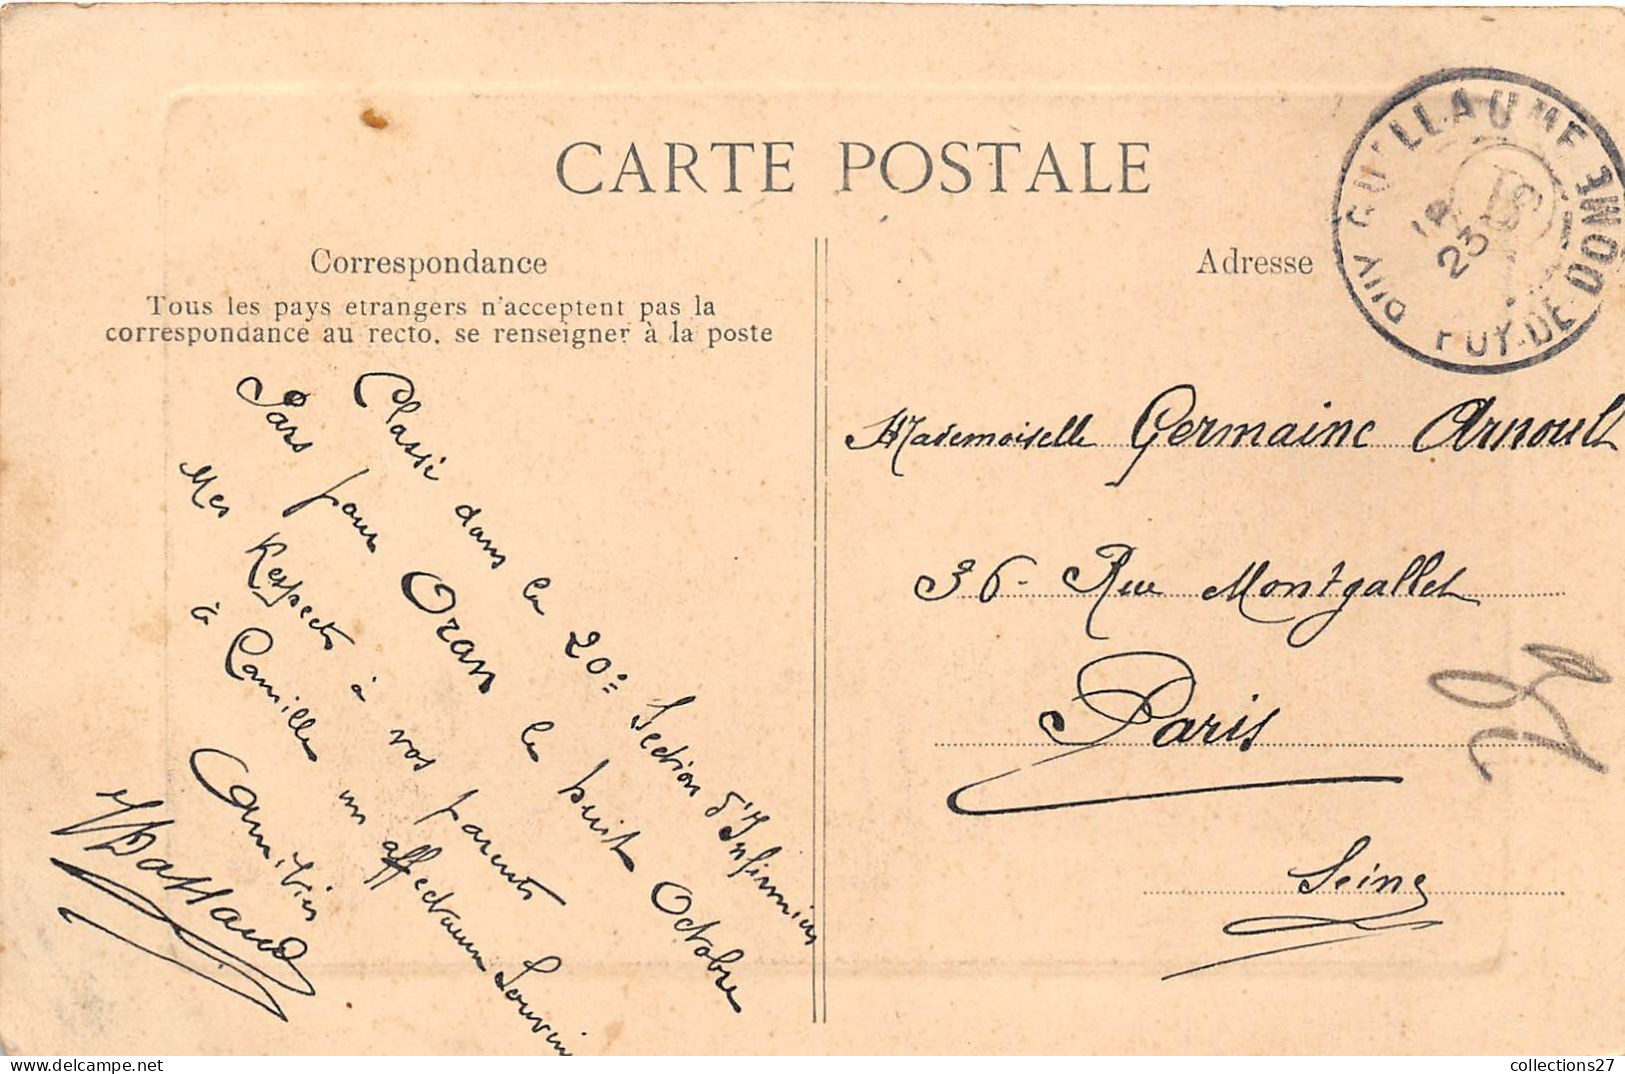 CARTE POSTALE
Correspondance
Tous les pays etrangers n'acceptent pas la
correspondance au recto, se renseigner à la poste
Classé dans la 20e Section d'Infirmiers
Pars pour Oran le huit Octobre
Mes Respects à vos parents
à Camille un affectueux Souvenir
Amitiés
Adresse
PUY GUILLAUME
PUY-DE-DÔME
23
Mademoiselle Germaine Arnoult
36 - Rue Montgallet
Paris
Seine
collections27